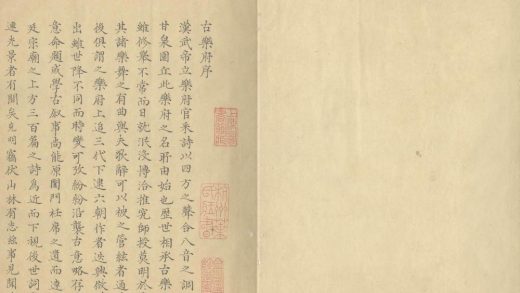 古樂府序
漢武帝立樂府官采詩以四方之聲合八音之調
甘泉圜丘此樂府之名所由始也歷世相承古樂
雖修舉不常而日就泯沒博洽推究師授莫明於
其諸樂舞之有曲與夫歌辭可以被之管絃者通
後俱謂之樂府上追三代下逮六朝作者迭興
出雖世降不同而時變可攷紛紛沿襲古意略存
意命題或學古叙事尚能原閨門衽席之遺而達
廷宗廟之上方三百篇之詩為近而下視後世詞
連光景者有間矣克明竊伏山林有志玆事見聞